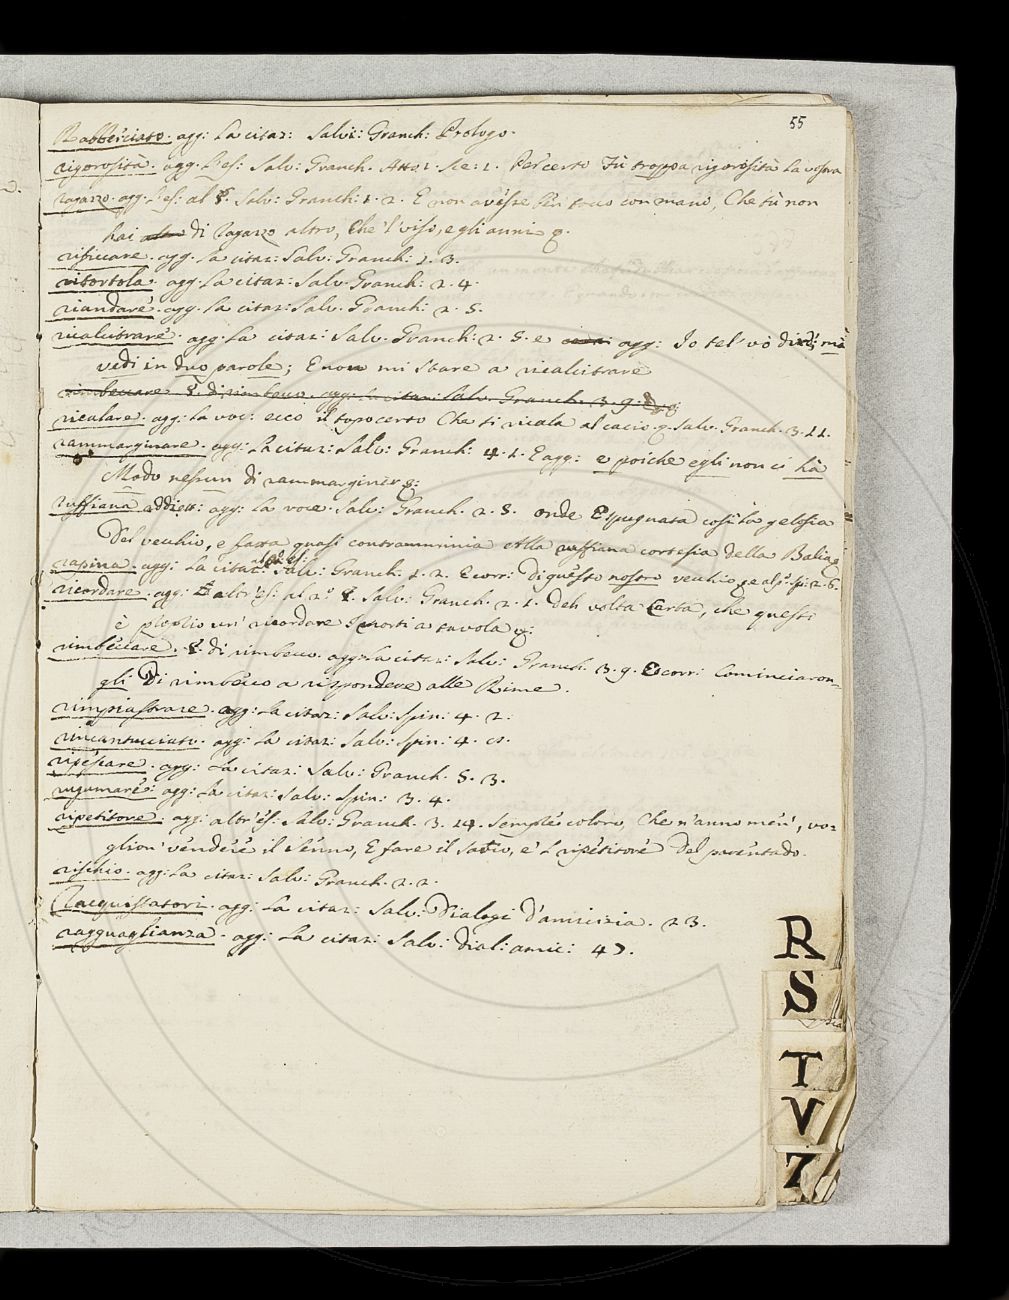 55
Rabberciato. agg: la citaz: Salvi: Granch: Prologo.
rigorosità. agg: l'es: Salv: Granch. Atto 1. Sce: 1. Per certo Fù troppa rigorosità la vostra
ragazzo. agg. l'es: al §. Salv: Granch: 1. 2. E non avesse poi tocco con mano, Che tù non
hai di ragazzo altro, che 'l viso, e gli anni
rificcare. agg. la citaz: Salv: Granch: 1. 3.
ritortola. agg. la citaz: Salv. Granch: 2. 4.
riandare. agg. la citaz: Salv. Granch: 2. 5.
ricalcitrare. agg. la citaz: Salv. Granch: 2. 5. e agg: Io tel vò dire; mà
vedi in duo parole; E non mi stare a ricalcitrare
rimbeccare §. di rimbecco. agg. la citaz: Salv. Granch. 3. 9.
ricalare. agg. la voc: ecco il topo certo Che si ricala al cacio. Salv. Granch. 3. 11.
rammarginare. agg: la citaz: Salv: Granch: 4. 1. E agg: e poiche egli non ci hà
Modo nessun di rammarginar
ruffiana addiett: agg: la voce. Salv: Granch. 2. 5. onde Espugnata così la gelosia
Del vecchio, e fatta quasi contrammina Alla ruffiana cortesia della Balia
rapina. agg: la citaz: Salv: Granch. 1. 2. E corr: Di questo nostro vecchio
ricordare. agg: altr'es: al 2º §. Salv: Granch. 2. 1. deh volta Carta, che questi
è proprio un' ricordare I morti a tavola
rimbeccare. §. di rimbecco. agg: la citaz: Salv: Granch. 3. 9. E corr: Cominciaron-
gli Di rimbecco a rispondere alle Rime.
rimpiastrare. agg: la citaz: Salv: Spin: 4. 2.
rincantucciato. agg: la citaz: Salv: Spin: 4.
ripescare. agg: la citaz: Salv: Granch. 5. 3.
rugumare. agg: la citaz: Salv: Spin: 3. 4.
ripetitore. agg: altr'es: Salv: Granch. 3. 14. Sempre coloro, Che n'anno men', vo-
glion' vendere il senno, E fare il Satio, e 'l ripetitore Del parentado.
rischio. agg: la citaz: Salv: Granch. 2. 2.
Racquistatori. agg: la citaz: Salv: Dialogi D'amicizia. 23.
ragguaglianza. agg: la citaz: Salv: Dial: amic: 47.
R
S
T
V
Z